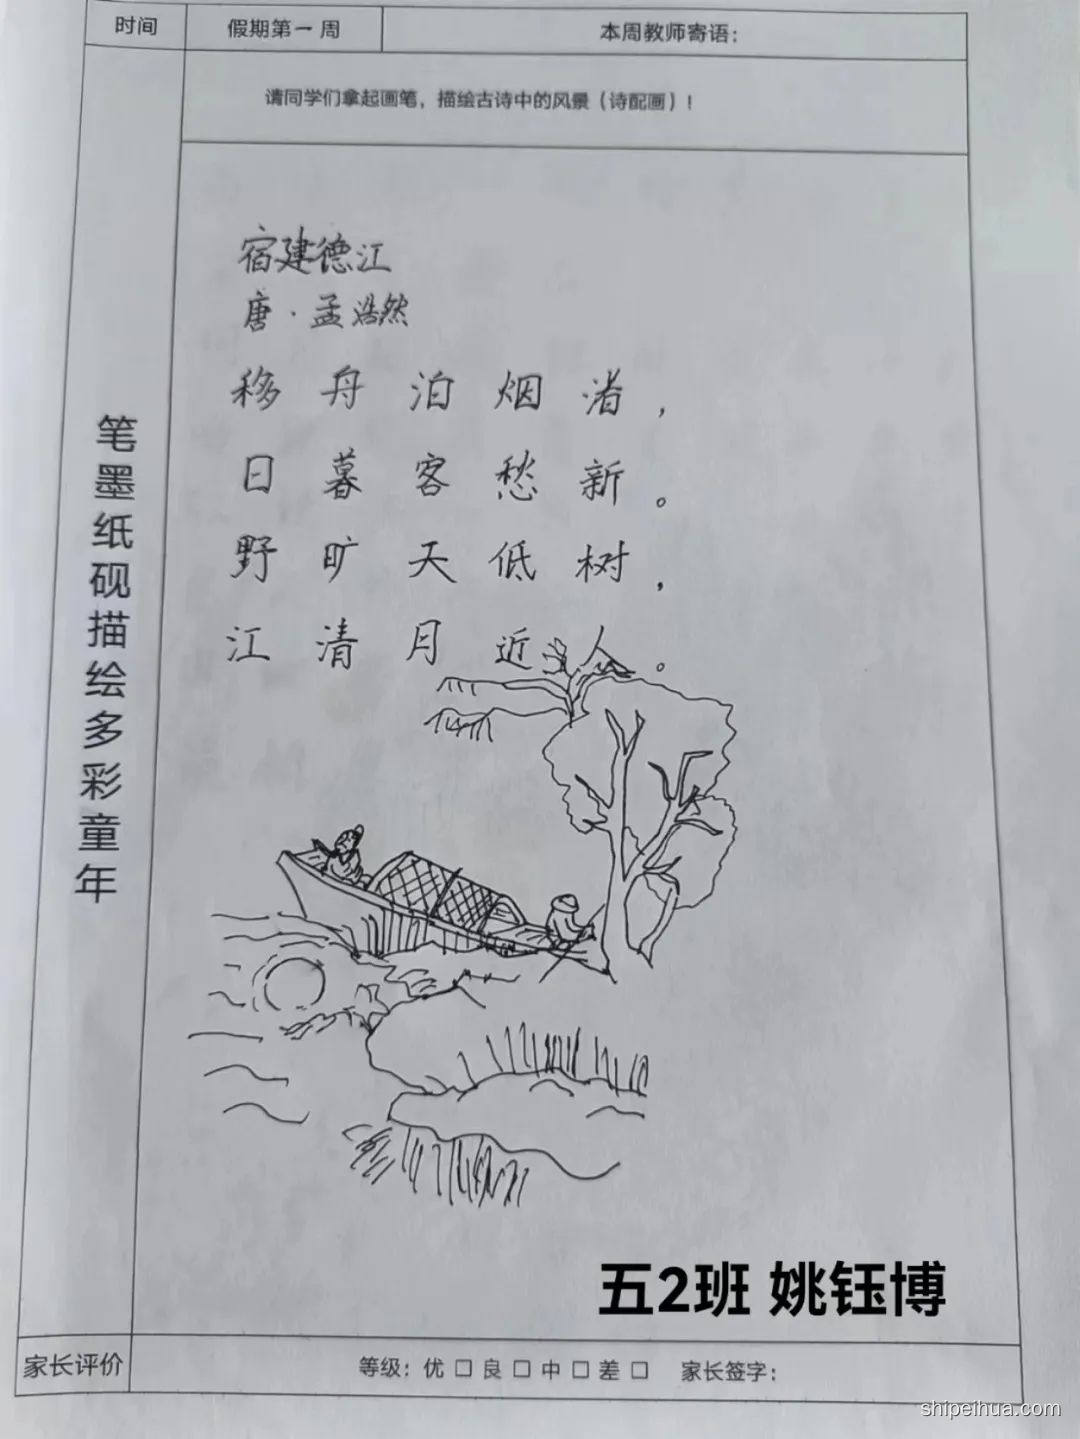 时间 假期第一周 本周教师寄语：
请同学们拿起画笔，描绘古诗中的风景（诗配画）！
笔墨纸砚描绘多彩童年
宿建德江
唐·孟浩然
移舟泊烟渚，
日暮客愁新。
野旷天低树，
江清月近人。
五2班 姚钰博
家长评价 等级：优□良□中□差□ 家长签字：
shipeihua.com